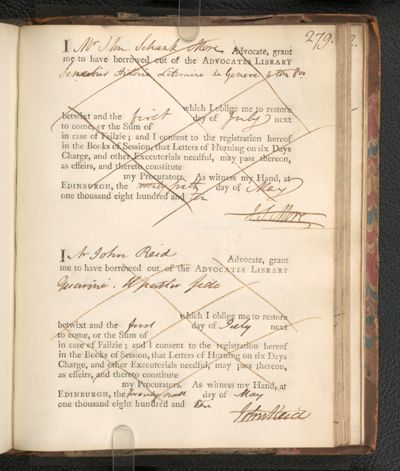 279.
I Mr Jhn Schank More Advocate, grant
me to have borrowed out of the ADVOCATES LIBRARY
Senebier Histoire Literaire de Geneve 3 tom 8vo
which I oblige me to restore
betwixt and the first day of July next
to come, or the Sum of
in case of Failzie; and I consent to the registration hereof
in the Books of Session, that Letters of Horning on six Days
Charge, and other Executorials needful, may pass thereon,
as effeirs, and thereto constitute
my Procurators. As witness my Hand, at
EDINBURGH, the day of May
one thousand eight hundred and ten
J. S. More
I Mr John Reid Advocate, grant
me to have borrowed out of the ADVOCATES LIBRARY
which I oblige me to restore
betwixt and the first day of July next
to come, or the Sum of
in case of Failzie; and I consent to the registration hereof
in the Books of Session, that Letters of Horning on six Days
Charge, and other Executorials needful, may pass thereon,
as effeirs, and thereto constitute
my Procurators. As witness my Hand, at
EDINBURGH, the day of May
one thousand eight hundred and ten
John Reid